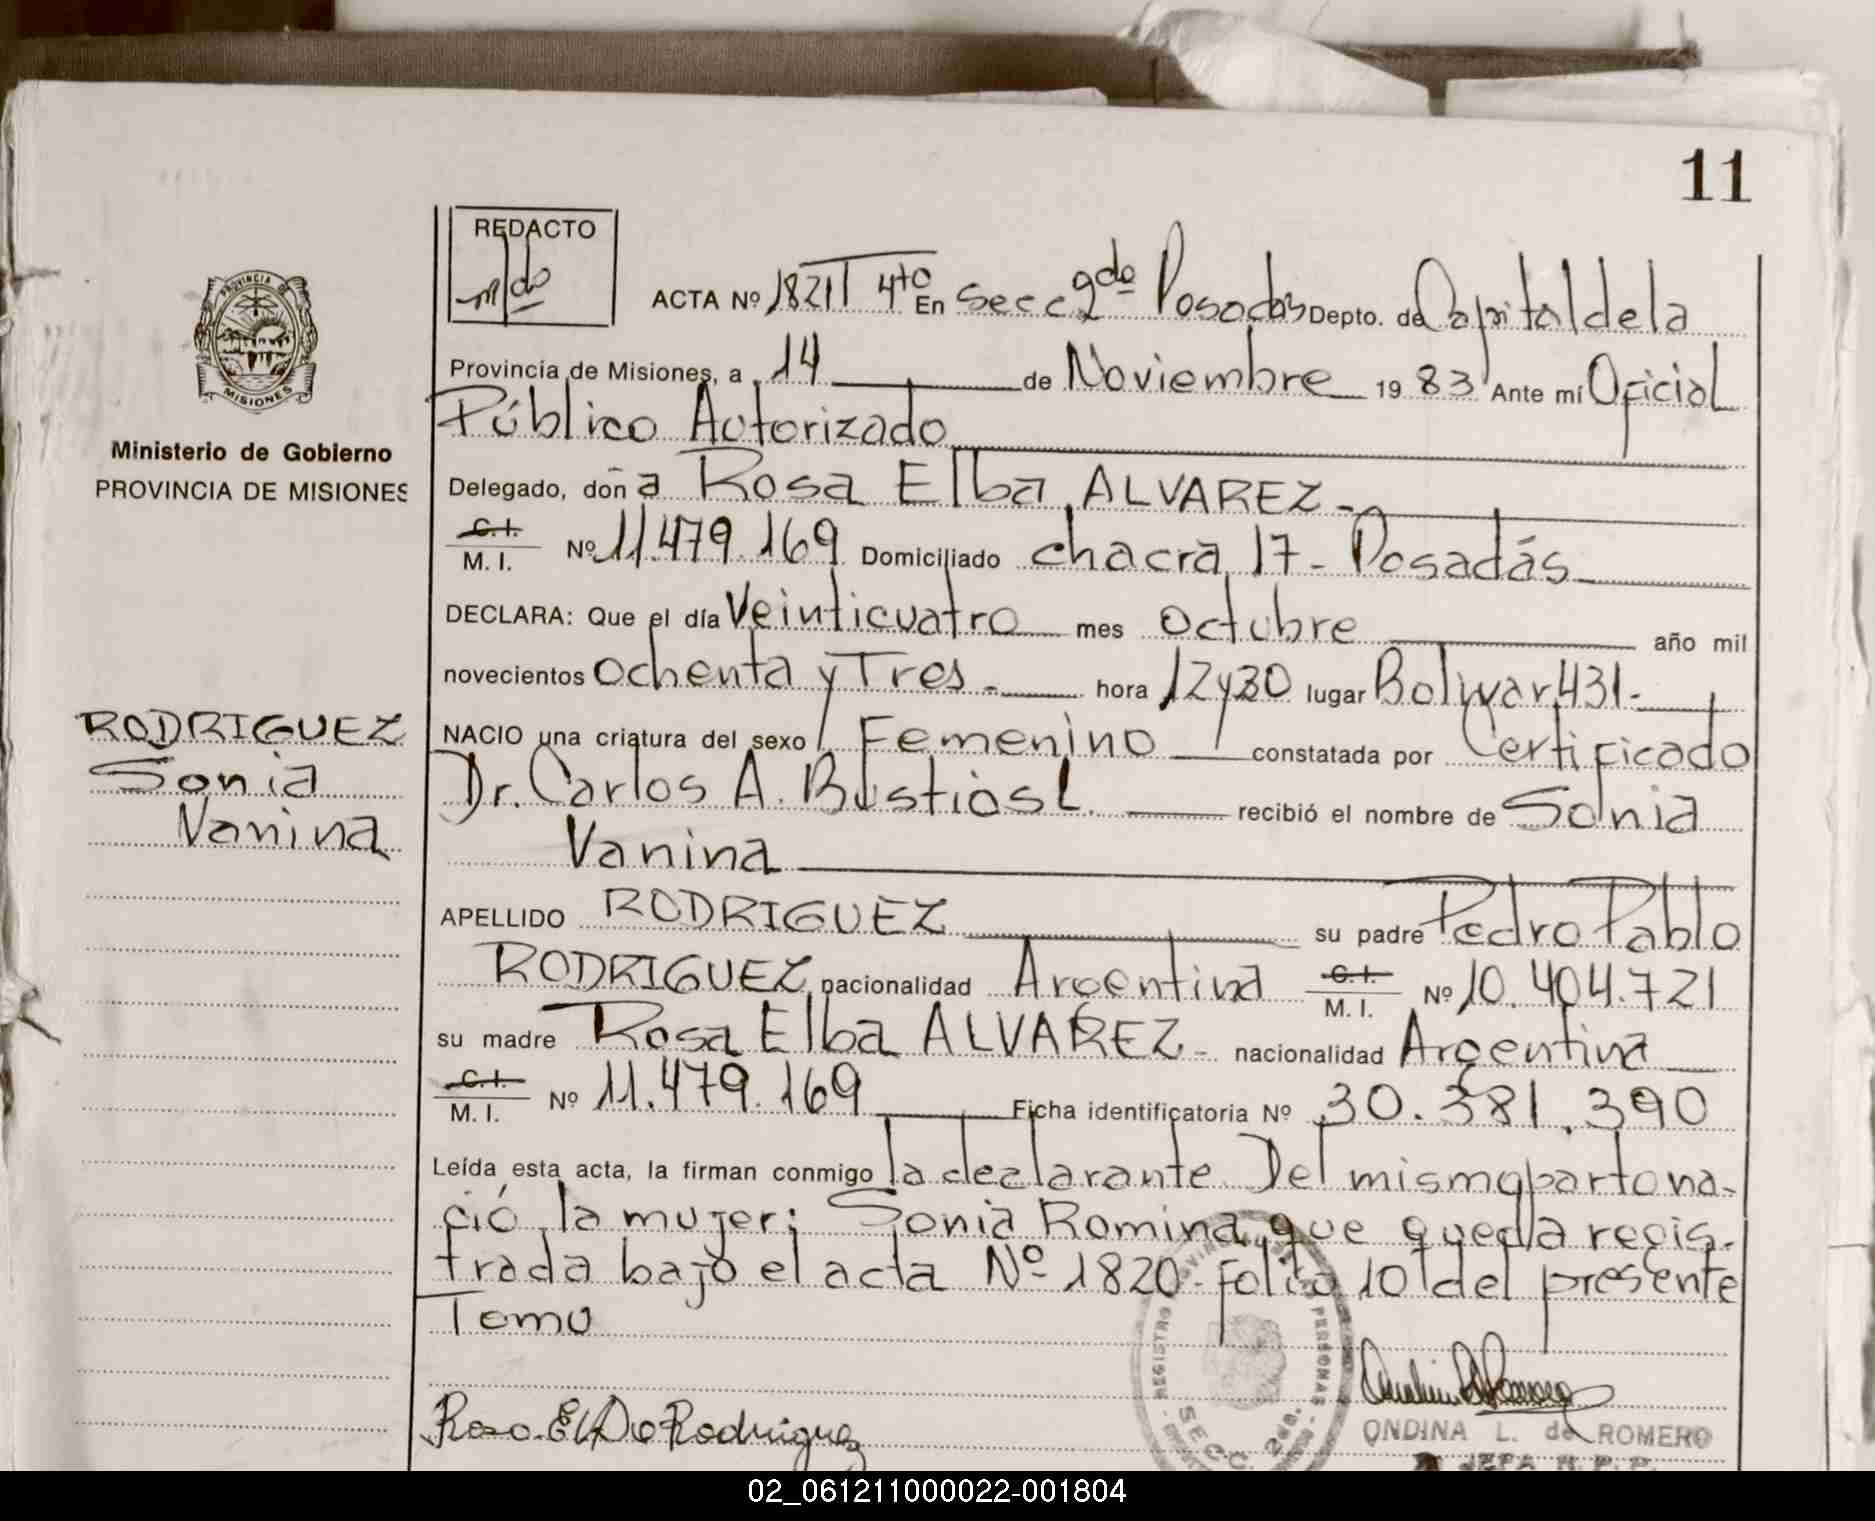 11
REDACTO
PROVINCIA DE
MISIONES
Ministerio de Gobierno
PROVINCIA DE MISIONES
RODRIGUEZ
Sonia
Vanina
ACTA Nº 1821 T 4to En Secc 2do Posadas Depto. de Capital de la
Provincia de Misiones, a 14 de Noviembre 1983 Ante mí Oficial
Público Autorizado
Delegado, doña Rosa Elba ALVAREZ -
C.I.
M. I. Nº 11.479.169 Domiciliado chacra 17 - Posadás
DECLARA: Que el día Veinticuatro mes octubre año mil
novecientos ochenta y Tres - hora 12 y 30 lugar Bolivar 431 -
NACIO una criatura del sexo Femenino constatada por Certificado
Dr. Carlos A. Bustios L. recibió el nombre de Sonia
Vanina
APELLIDO RODRIGUEZ su padre Pedro Pablo
RODRIGUEZ nacionalidad Argentina C.I. M. I. Nº 10.404.721
su madre Rosa Elba ALVAREZ - nacionalidad Argentina
C.I.
M. I. Nº 11.479.169 Ficha identificatoria Nº 30.381.390
Leída esta acta, la firman conmigo la declarante. Del mismo parto na-
ció la mujer: Sonia Romina que queda regis-
trada bajo el acta Nº 1820 - folio 10 del presente
Tomo
Rosa E A De Rodriguez
REGISTRO PERSONAS
SECC. 2da.
ONDINA L. de ROMERO
02_061211000022-001804